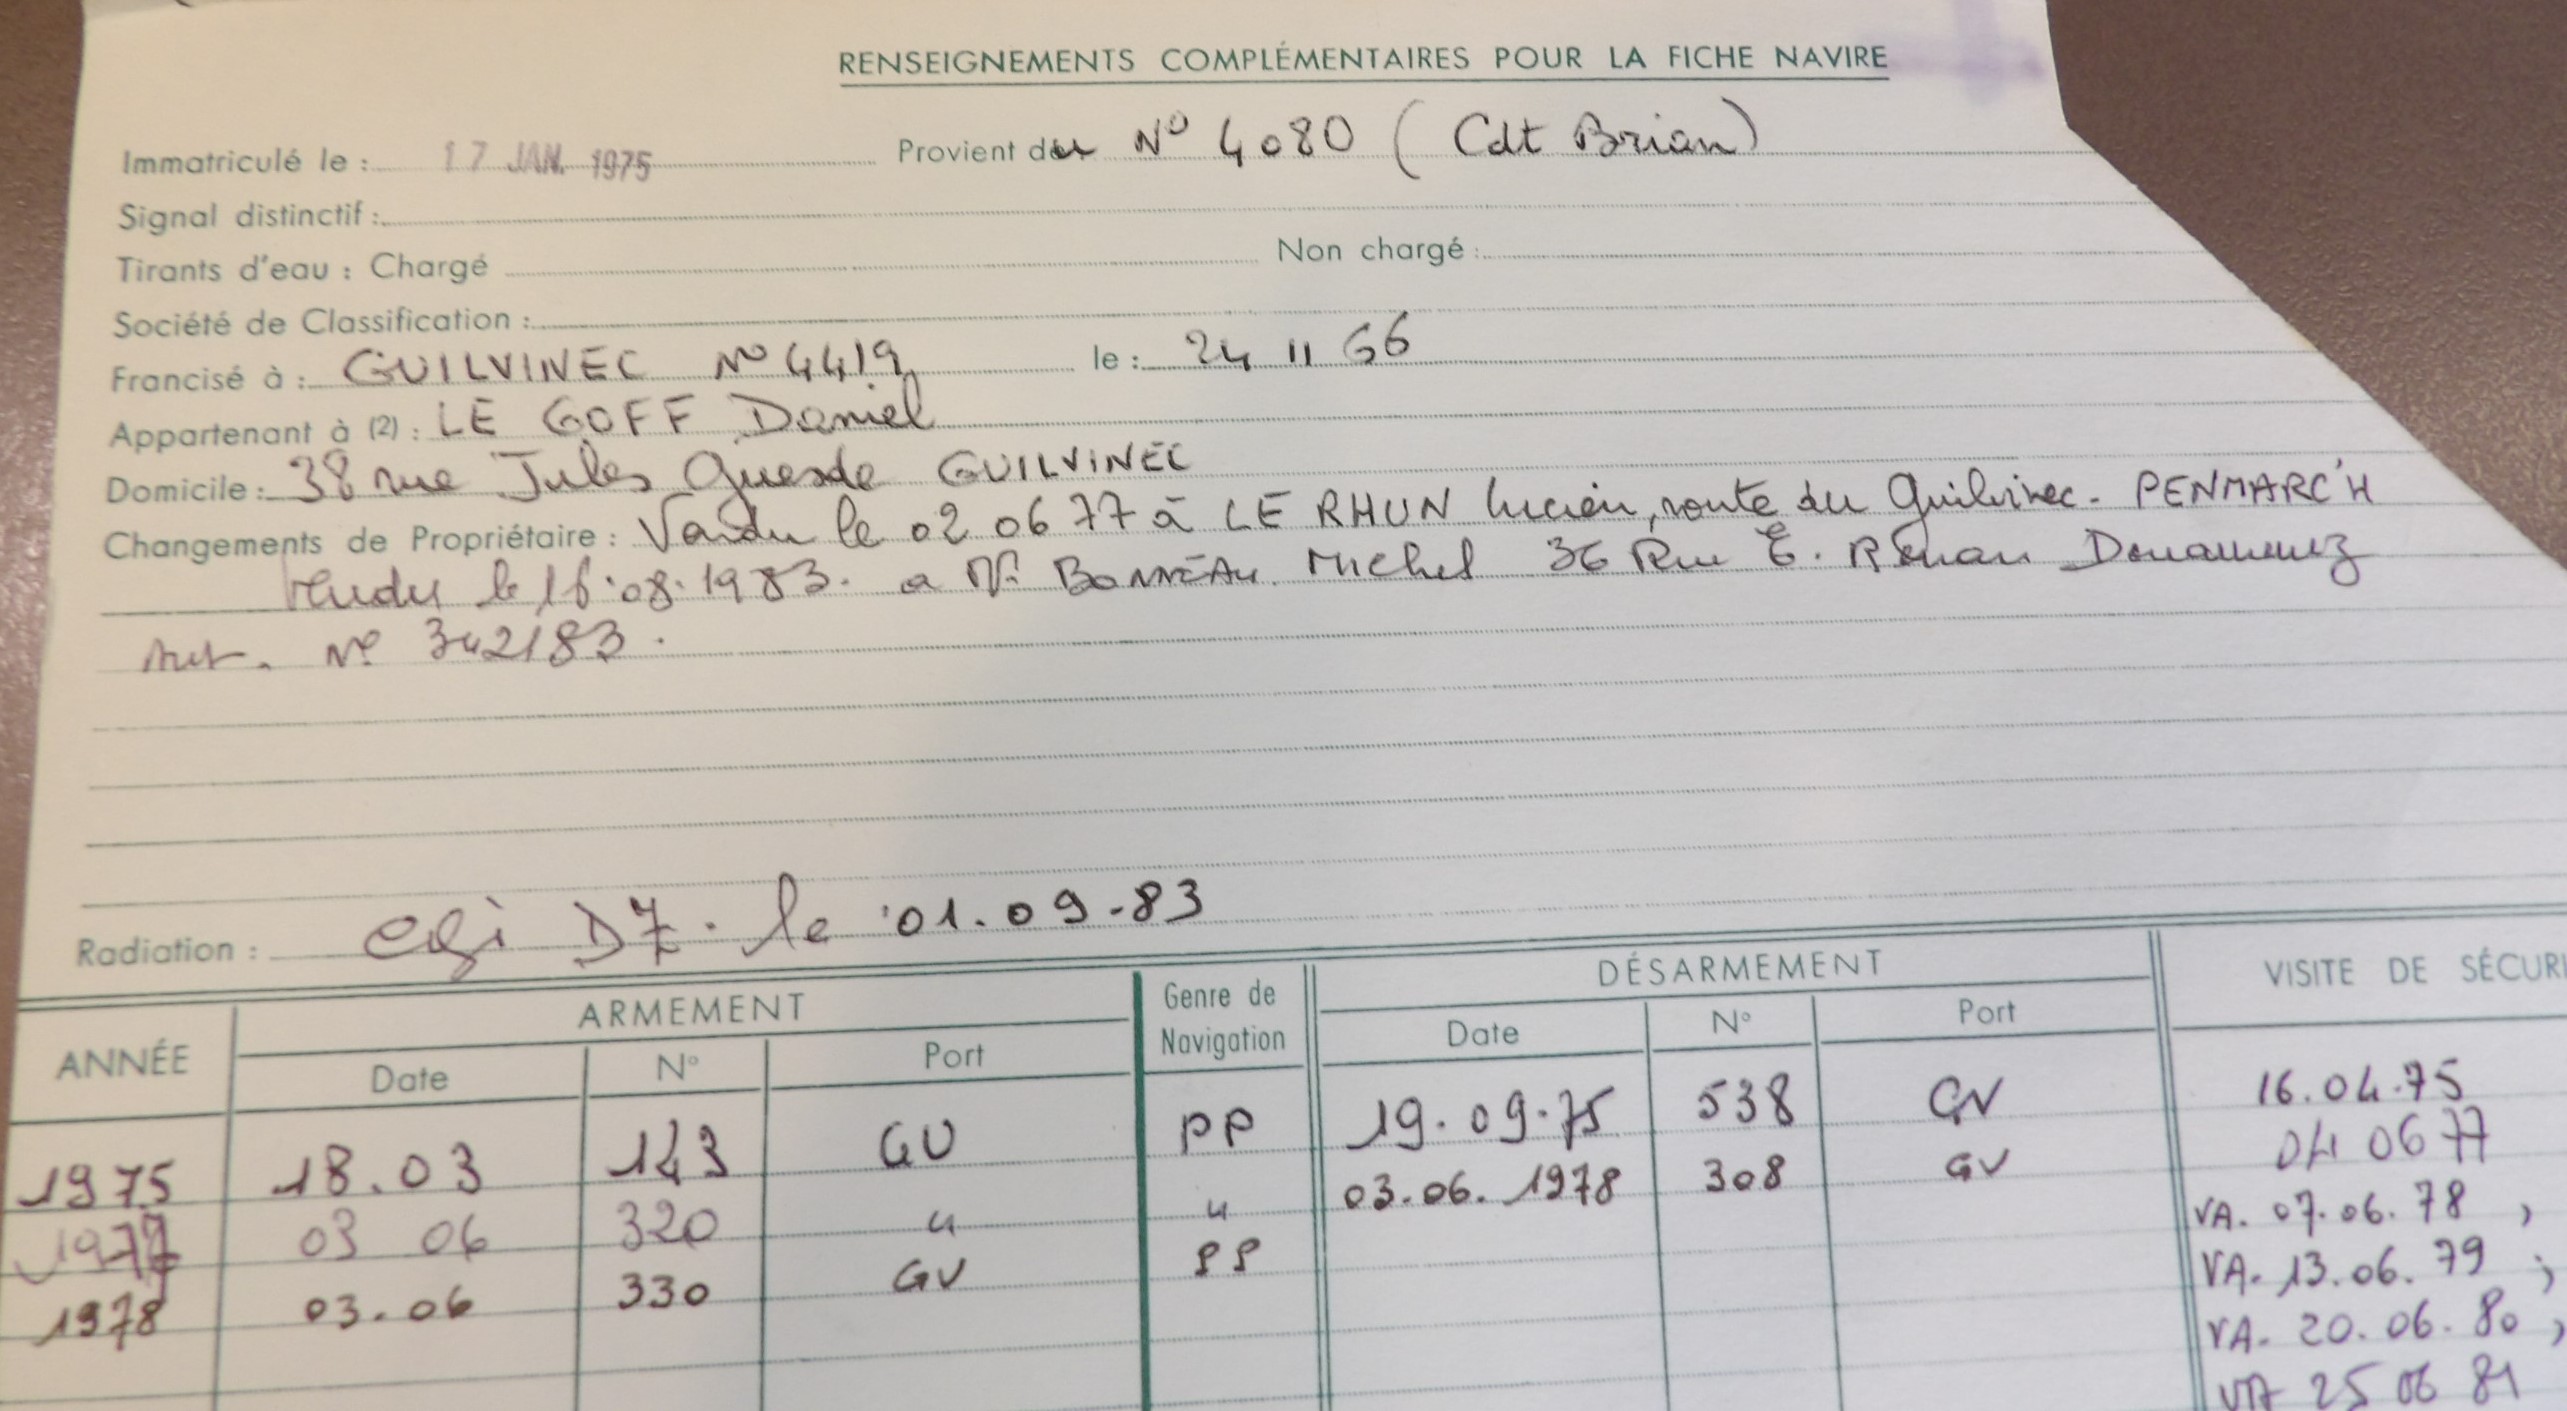 RENSEIGNEMENTS COMPLÉMENTAIRES POUR LA FICHE NAVIRE
Immatriculé le : 17 JAN. 1975 Provient du N° 4080 (Cdt Brian)
Signal distinctif :
Tirants d'eau : Chargé Non chargé :
Société de Classification :
Francisé à : GUILVINEC N° 4419 le : 24 11 66
Appartenant à (2) : LE GOFF Daniel
Domicile : 38 rue Jules Guesde GUILVINEC
Changements de Propriétaire : Vendu le 02 06 77 à LE RHUN Lucien, route du Guilvinec - PENMARC'H
Vendu le 16.08.1983. a Mr BONNEAU Michel 36 Rue E. Renan Douarnenez
Aut. N° 342183.
Radiation : DZ. le 01.09.83
ANNÉE ARMEMENT Genre de Navigation DÉSARMEMENT VISITE DE SÉCURI
Date N° Port Date N° Port
1975 18.03 143 GV PP 19.09.75 538 GV 16.04.75
1977 03 06 320 " " 03.06.1978 308 GV 04 06 77
1978 03.06 330 GV PP VA. 07.06.78 ,
VA. 13.06.79 ;
VA. 20.06.80 ,
VA 25 06 81